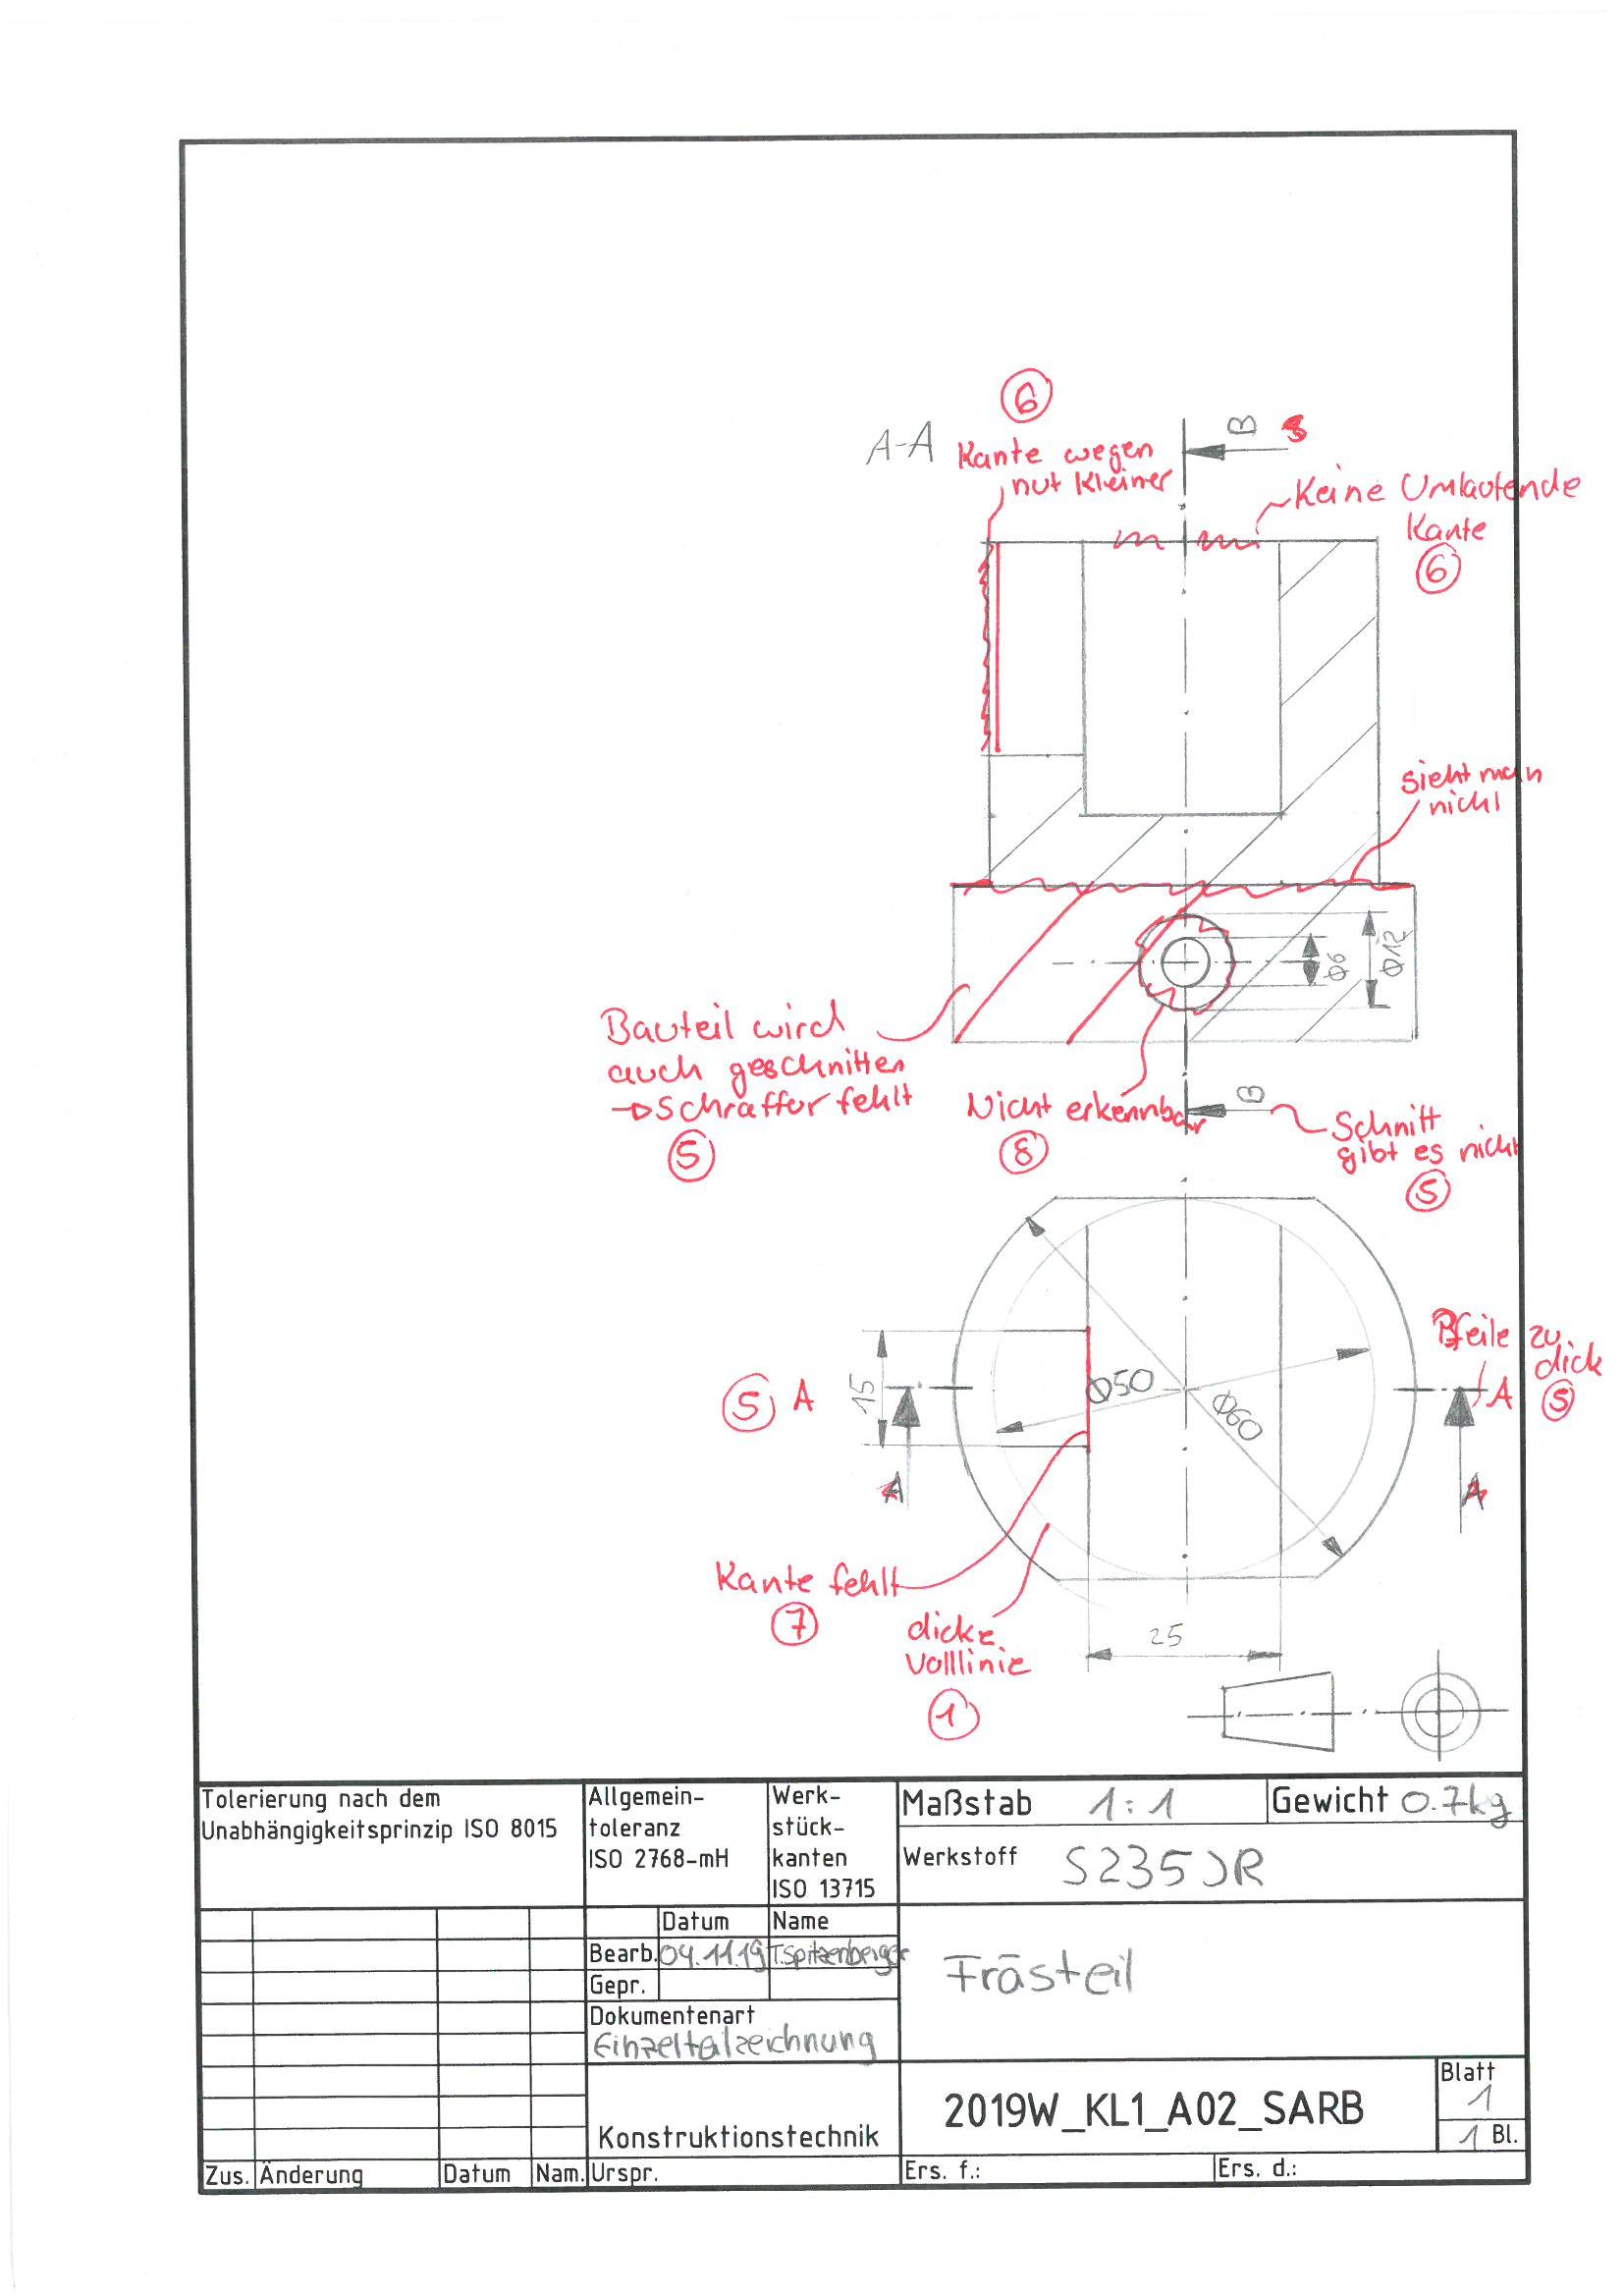 6
A-A
Kante wegen
nut Kleiner
B
Keine Umlaufende
Kante
6
sieht man
nicht
Ø6
Ø12
Bauteil wird
auch geschnitten
→ Schraffur fehlt
5
Nicht erkennbar
8
B
Schnitt
gibt es nicht
5
Pfeile zu
dick
5
5 A
15
Ø50
Ø60
A
A
A
Kante fehlt
7
dicke
Volllinie
1
25
Tolerierung nach dem
Unabhängigkeitsprinzip ISO 8015
Allgemein-
toleranz
ISO 2768-mH
Werk-
stück-
kanten
ISO 13715
Maßstab 1:1
Gewicht 0.7kg
Werkstoff S235JR
Datum
Name
Bearb. 04.11.19 T.Spitzenberger
Gepr.
Dokumentenart
Einzelteilzeichnung
Frästeil
Konstruktionstechnik
2019W_KL1_A02_SARB
Blatt
1
1 Bl.
Zus. Änderung Datum Nam. Urspr. Ers. f.: Ers. d.: